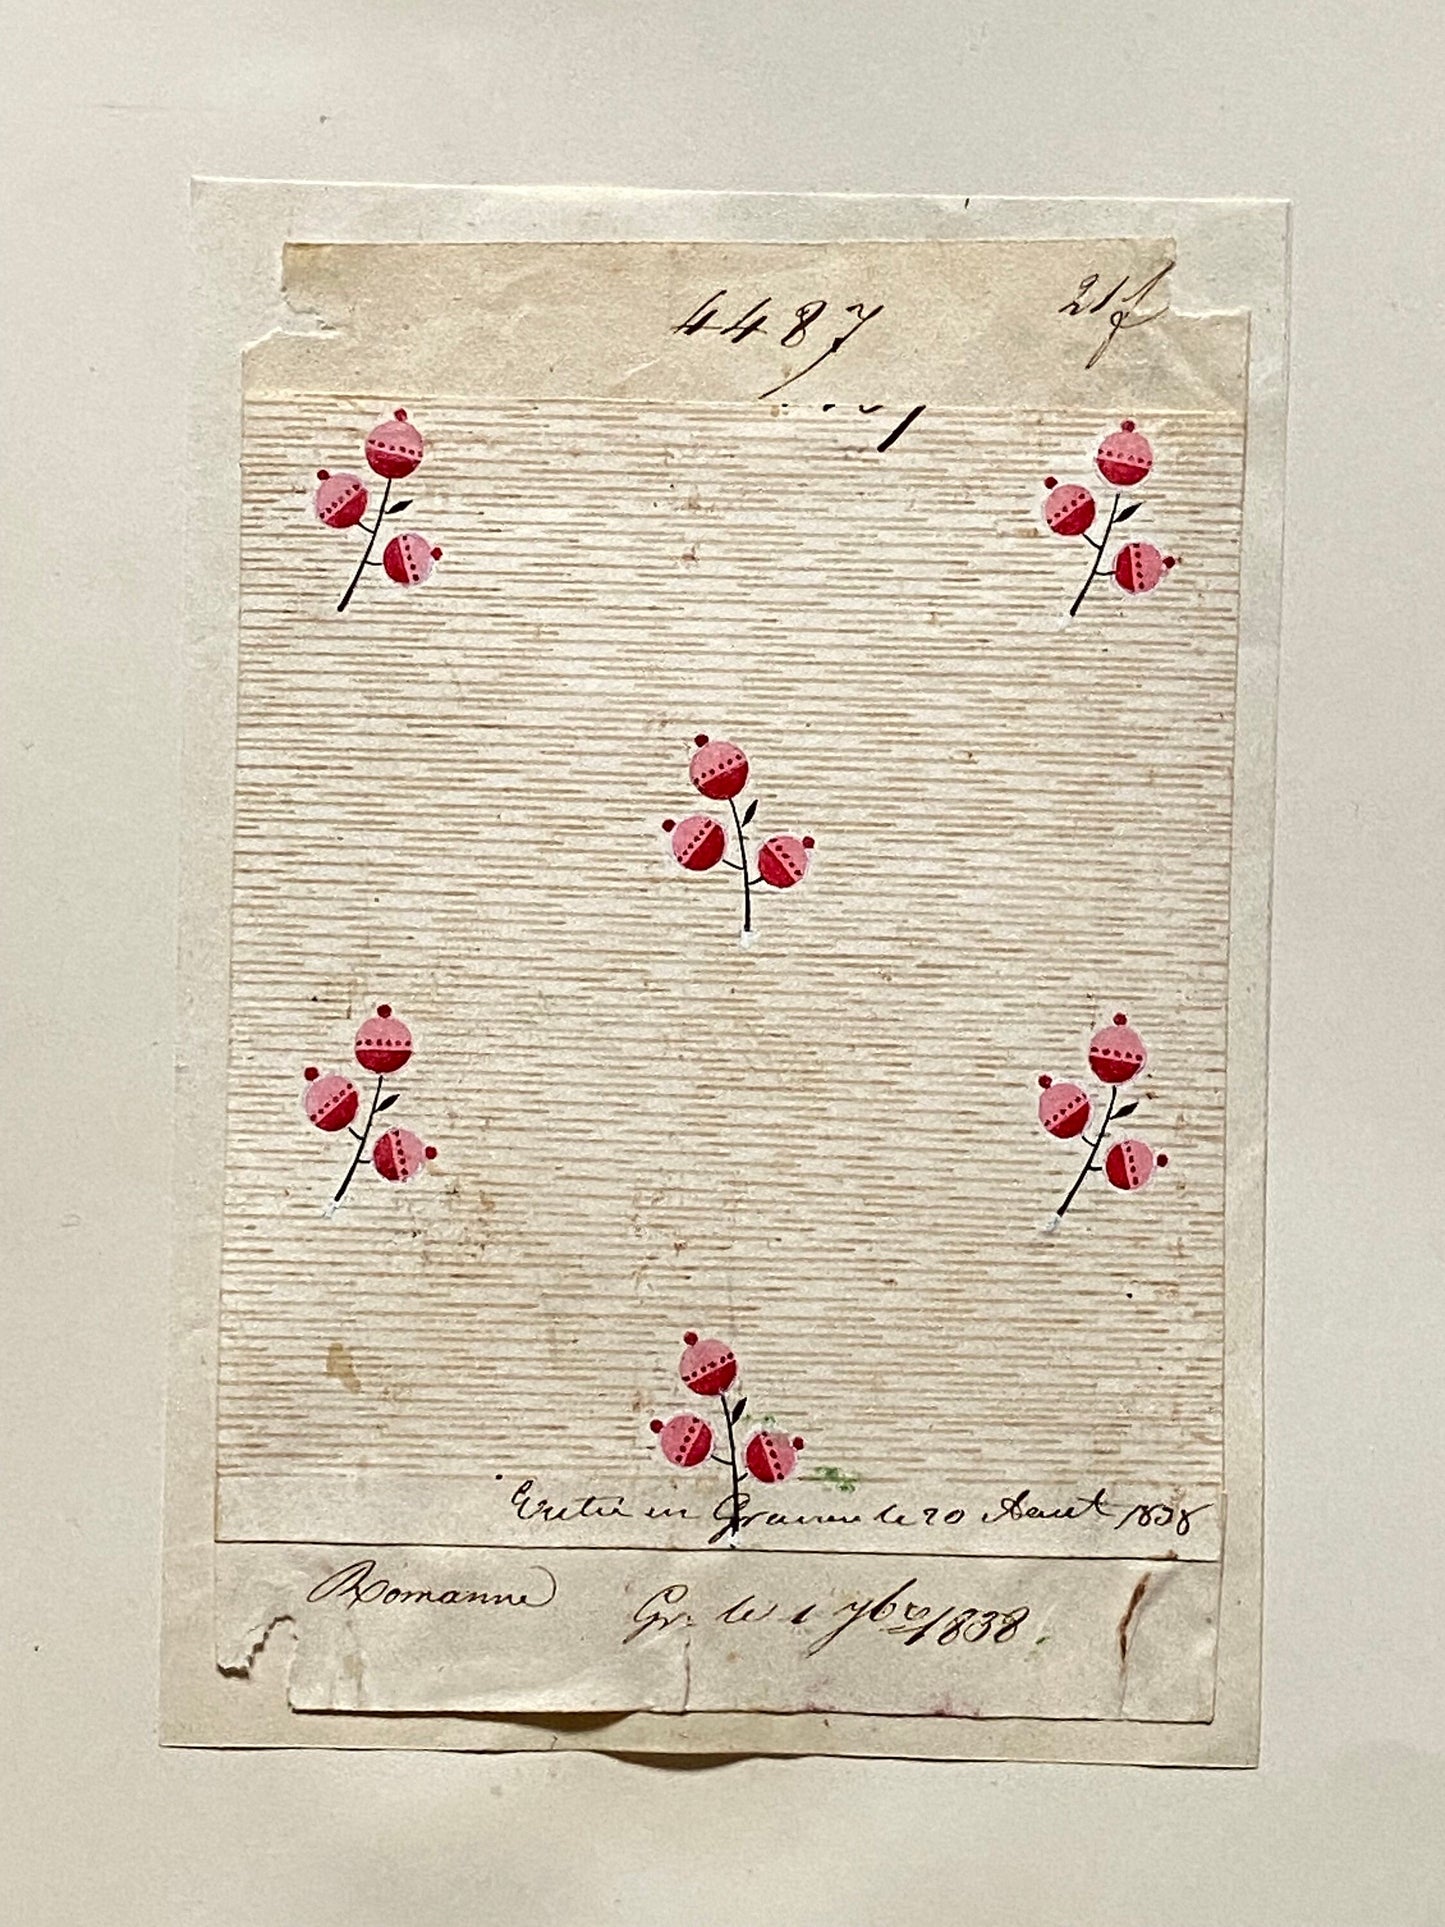 4487
21f
Entré en Gravure le 20 Aout 1838
Romanne
Gr. le 1 7bre 1838